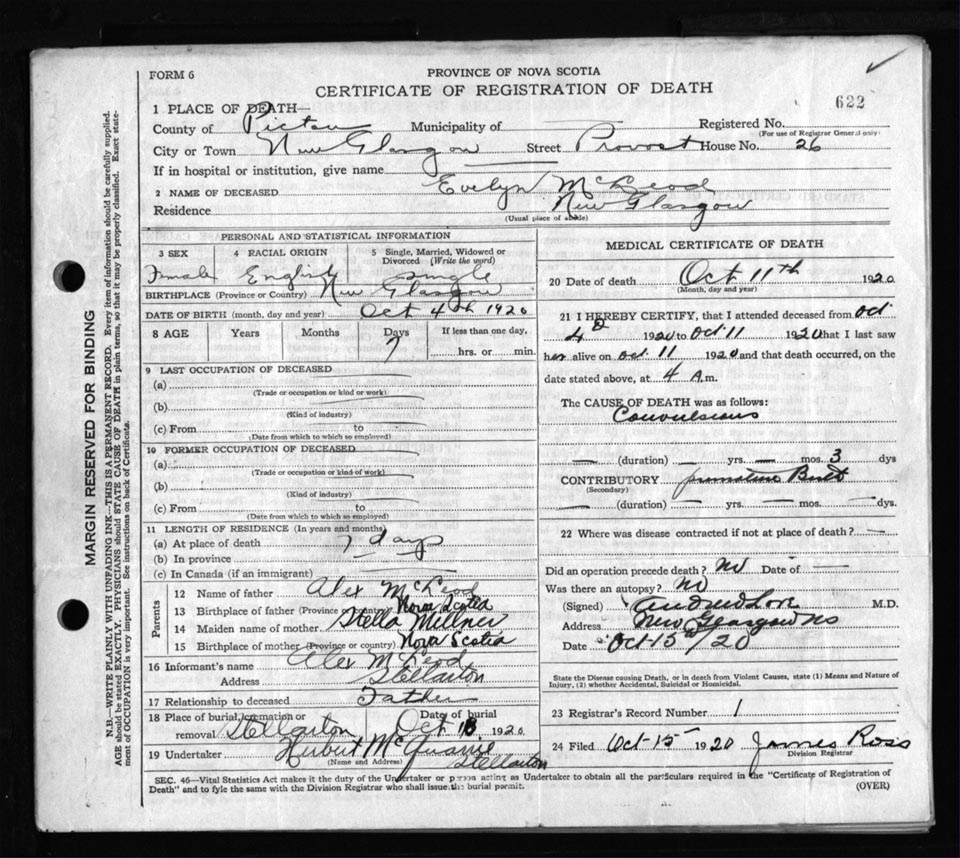 FORM 6
PROVINCE OF NOVA SCOTIA
CERTIFICATE OF REGISTRATION OF DEATH
622
1 PLACE OF DEATH—
County of Pictou Municipality of Registered No.
(For use of Registrar General only)
City or Town New Glasgow Street Provost House No. 26
If in hospital or institution, give name
2 NAME OF DECEASED Evelyn McLeod
Residence New Glasgow
(Usual place of abode)
MARGIN RESERVED FOR BINDING
N.B.—WRITE PLAINLY WITH UNFADING INK—THIS IS A PERMANENT RECORD. Every item of information should be carefully supplied.
AGE should be stated EXACTLY. PHYSICIANS should STATE CAUSE OF DEATH in plain terms, so that it may be properly classified. Exact state-
ment of OCCUPATION is very important. See instructions on back of Certificate.
PERSONAL AND STATISTICAL INFORMATION
3 SEX 4 RACIAL ORIGIN 5 Single, Married, Widowed or
Divorced (Write the word)
Female English single
BIRTHPLACE (Province or Country) New Glasgow
DATE OF BIRTH (month, day and year) Oct 4th 1920
8 AGE Years Months Days If less than one day,
7 hrs. or min.
9 LAST OCCUPATION OF DECEASED
(a)
(Trade or occupation or kind or work)
(b)
(Kind of industry)
(c) From to
(Date from which to which so employed)
10 FORMER OCCUPATION OF DECEASED
(a)
(Trade or occupation or kind of work)
(b)
(Kind of industry)
(c) From to
(Date from which to which so employed)
11 LENGTH OF RESIDENCE (In years and months)
(a) At place of death 7 days
(b) In province
(c) In Canada (if an immigrant)
Parents
12 Name of father Alex McLeod
13 Birthplace of father (Province or country) Nova Scotia
14 Maiden name of mother Stella Millner
15 Birthplace of mother (Province or country) Nova Scotia
16 Informant's name Alex McLeod
Address Stellarton
17 Relationship to deceased Father
18 Place of burial, cremation or Date of burial
removal Stellarton Oct 1920
19 Undertaker Herbert McQuarrie
(Name and Address) Stellarton
MEDICAL CERTIFICATE OF DEATH
20 Date of death Oct 11th 1920
(Month, day and year)
21 I HEREBY CERTIFY, that I attended deceased from Oct
4 1920 to Oct 11 1920 that I last saw
her alive on Oct. 11 1920 and that death occurred, on the
date stated above, at 4 A.m.
The CAUSE OF DEATH was as follows:
Convulsions
— (duration) — yrs. — mos. 3 dys
CONTRIBUTORY premature Birth
(Secondary)
— (duration) — yrs. — mos. — dys.
22 Where was disease contracted if not at place of death? —
Did an operation precede death? no Date of —
Was there an autopsy? no
(Signed) Andrew Love M.D.
Address New Glasgow NS
Date Oct-15th/20
State the Disease causing Death, or in death from Violent Causes, state (1) Means and Nature of
Injury, (2) whether Accidental, Suicidal or Homicidal.
23 Registrar's Record Number 1
24 Filed Oct-15— 1920 James Ross
Division Registrar
SEC. 46—Vital Statistics Act makes it the duty of the Undertaker or person acting as Undertaker to obtain all the particulars required in the "Certificate of Registration of
Death" and to fyle the same with the Division Registrar who shall issue the burial permit.
(OVER)